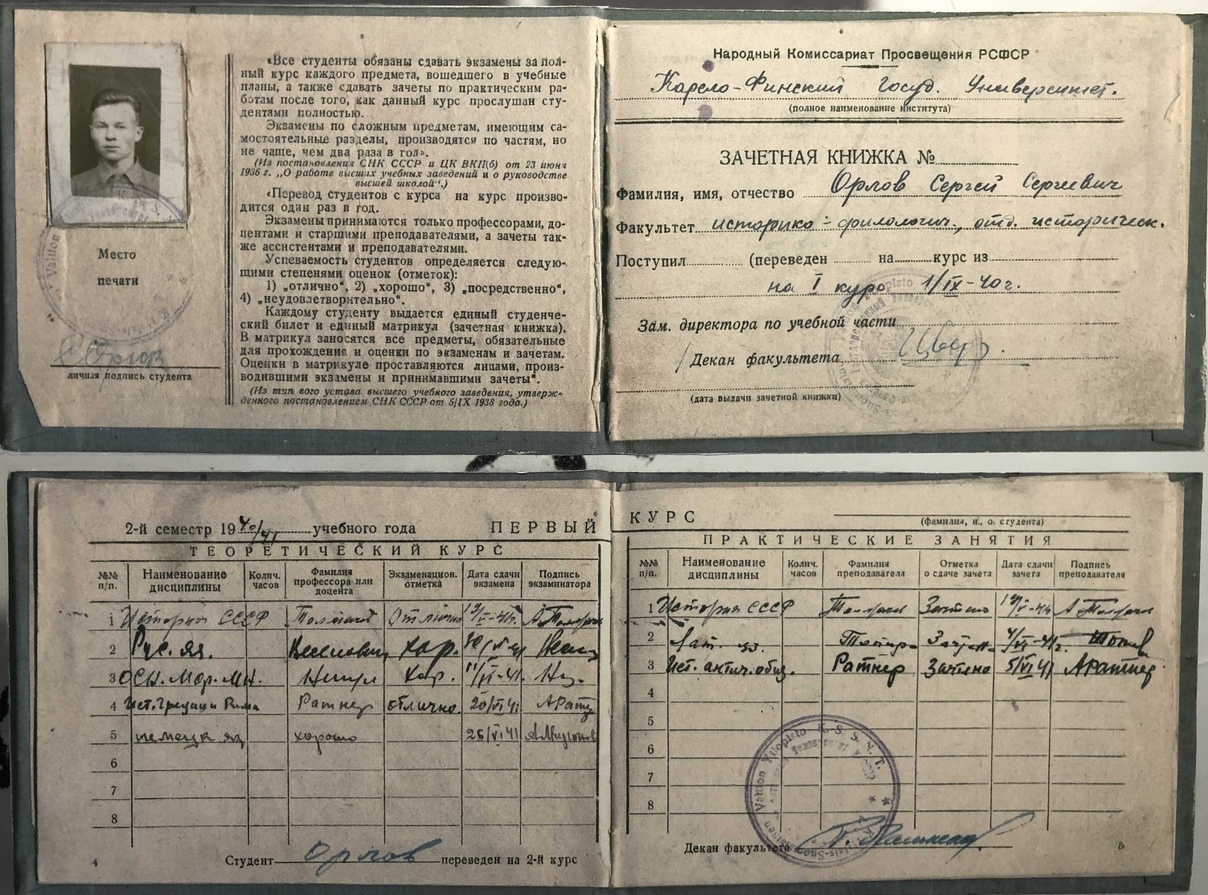 «Все студенты обязаны сдавать экзамены за пол-
ный курс каждого предмета, вошедшего в учебные
планы, а также сдавать зачеты по практическим ра-
ботам после того, как данный курс прослушан сту-
дентами полностью.
Экзамены по сложным предметам, имеющим са-
мостоятельные разделы, производятся по частям, но
не чаще, чем два раза в год».
(Из постановления СНК СССР и ЦК ВКП(б) от 23 июня
1936 г. „О работе высших учебных заведений и о руководстве
высшей школой“.)
«Перевод студентов с курса на курс произво-
дится один раз в год.
Экзамены принимаются только профессорами, до-
центами и старшими преподавателями, а зачеты так-
же ассистентами и преподавателями.
Успеваемость студентов определяется следую-
щими степенями оценок (отметок):
1) „отлично“, 2) „хорошо“, 3) „посредственно“,
4) „неудовлетворительно“.
Каждому студенту выдается единый студенче-
ский билет и единый матрикул (зачетная книжка).
В матрикул заносятся все предметы, обязательные
для прохождения и оценки по экзаменам и зачетам.
Оценки в матрикуле проставляются лицами, произ-
водившими экзамены и принимавшими зачеты“.
(Из типового устава высшего учебного заведения, утверж-
денного постановлением СНК СССР от 5/IX 1938 года.)
Место
печати
личная подпись студента
Народный Комиссариат Просвещения РСФСР
Карело-Финский Госуд. Университет.
(полное наименование института)
ЗАЧЕТНАЯ КНИЖКА №
Фамилия, имя, отчество Орлов Сергей Сергеевич
Факультет историко-филологич., отд. историческ.
Поступил (переведен на курс из
на I курс 1/IX-40г.
Зам. директора по учебной части
Декан факультета
(дата выдачи зачетной книжки)
2-й семестр 1940/41 учебного года ПЕРВЫЙ
ТЕОРЕТИЧЕСКИЙ КУРС
№№ п/п. Наименование дисциплины Колич. часов Фамилия профессора или доцента Экзаменацион. отметка Дата сдачи экзамена Подпись экзаменатора
1 История СССР Отлично
2 Рус. яз. хор.
3 Осн. Мар. Л-н. Хор. 11/VI-41
4 Ист. Греции и Рима Ратнер отлично 20/VI 41 А Ратнер
5 немецк яз хорошо 25/VI 41
6
7
8
4
Студент Орлов переведен на 2-й курс
КУРС
(фамилия, и., о. студента)
ПРАКТИЧЕСКИЕ ЗАНЯТИЯ
№№ п/п. Наименование дисциплины Колич. часов Фамилия преподавателя Отметка о сдаче зачета Дата сдачи зачета Подпись преподавателя
1 История СССР Зачтено
2 Лат. яз.
3 Ист. антич. общ. Ратнер Зачтено 5/VI 41 А Ратнер
4
5
6
7
8
Декан факультета
5